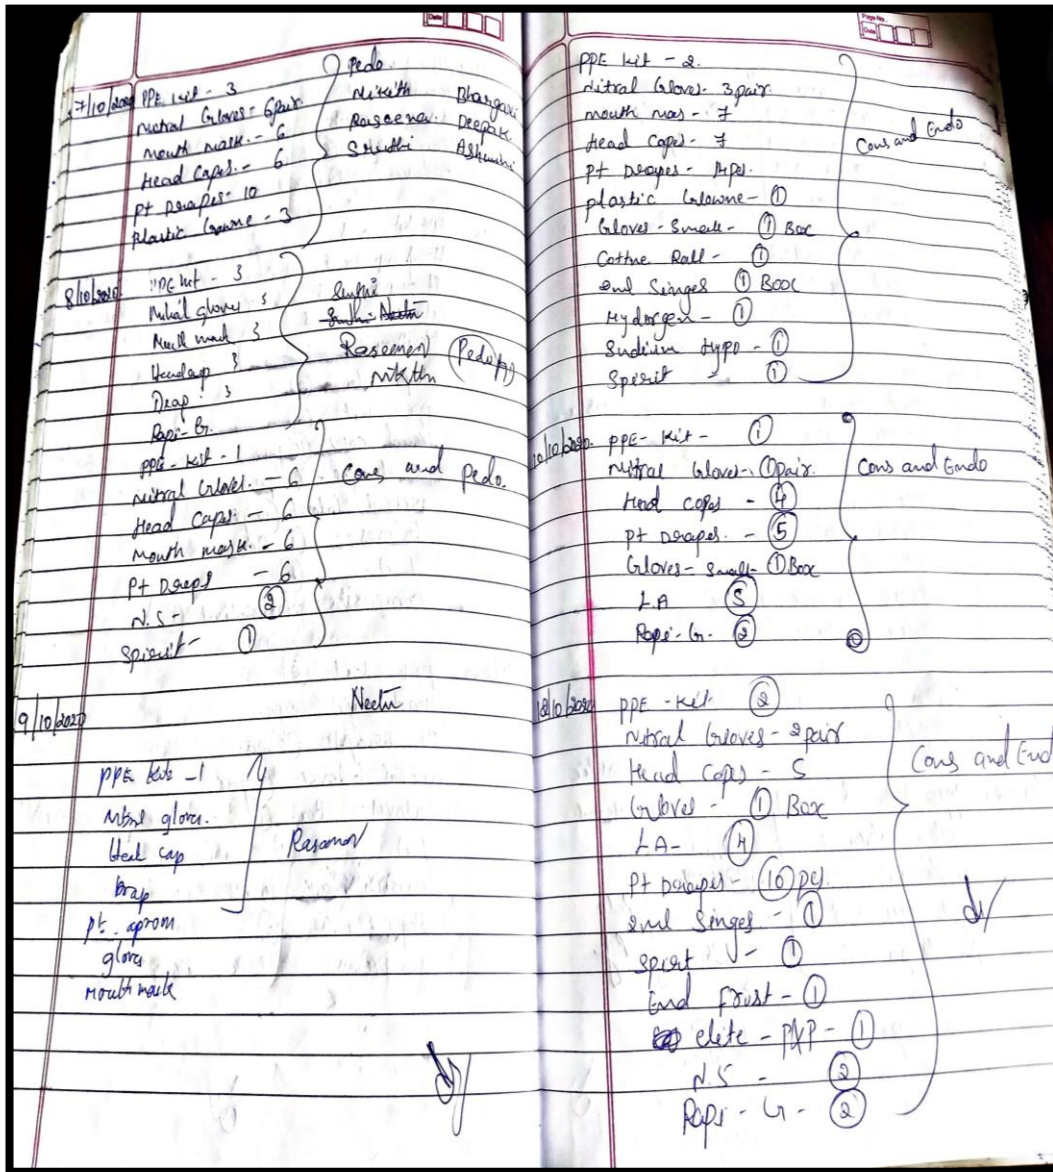 Date
7/10/2020 PPE Kit - 3
Nitral Gloves - 6 pair.
Mouth mask - 6
Head Capes. - 6
Pt Drapes - 10
Plastic Gowne - 3
Pedo
Nikith Bhargavi
Raseena Deepak.
Sruthi Ashwini
8/10/2020 PPE kit - 3
Nitral gloves 3
Mouth mask 3
Headcap 3
Drap 3
Rapi-Gr.
Sruthi
Raseenon
Nikith
Pedo
PPE - Kit - 1
Nitral Gloves. - 6
Head Capes - 6
Mouth mask. - 6
Pt Draps - 6
N.S - 2
Spirit - 1
Cons and Pedo.
9/10/2020 Neetu
PPE Kit - 1
Nitral gloves.
Head cap
Drap
Pt. aprom
gloves
Mouth mask
Rasamon
Page No.
Date
PPE Kit - 2.
Nitral Gloves - 3 pair.
Mouth mas - 7
Head Capes - 7
Pt Drapes - 14 ps.
Plastic Glowne - 1
Gloves - Small - 1 Box
Cottne Roll - 1
2ml Singes 1 Boox
Hydorgen - 1
Sudium Hypo - 1
Spirit - 1
Cons and Endo
10/10/2020. PPE - Kit - 1
Nitral Gloves - 1 pair.
Head Capes - 4
Pt Drapes. - 5
Gloves - Small - 1 Box
L.A 5
Rapi-Gr. 2
Cons and Endo
12/10/2020 PPE - Kit 2
Nitral Gloves - 2 pair
Head Capes - 5
Gloves - 1 Box
LA - 4
Pt Drapes - 10 pcs.
2ml Singes - 1
Spirit - 1
End Frost - 1
elite - P\P - 1
N.S - 2
Rapi - Gr - 2
Cons and End